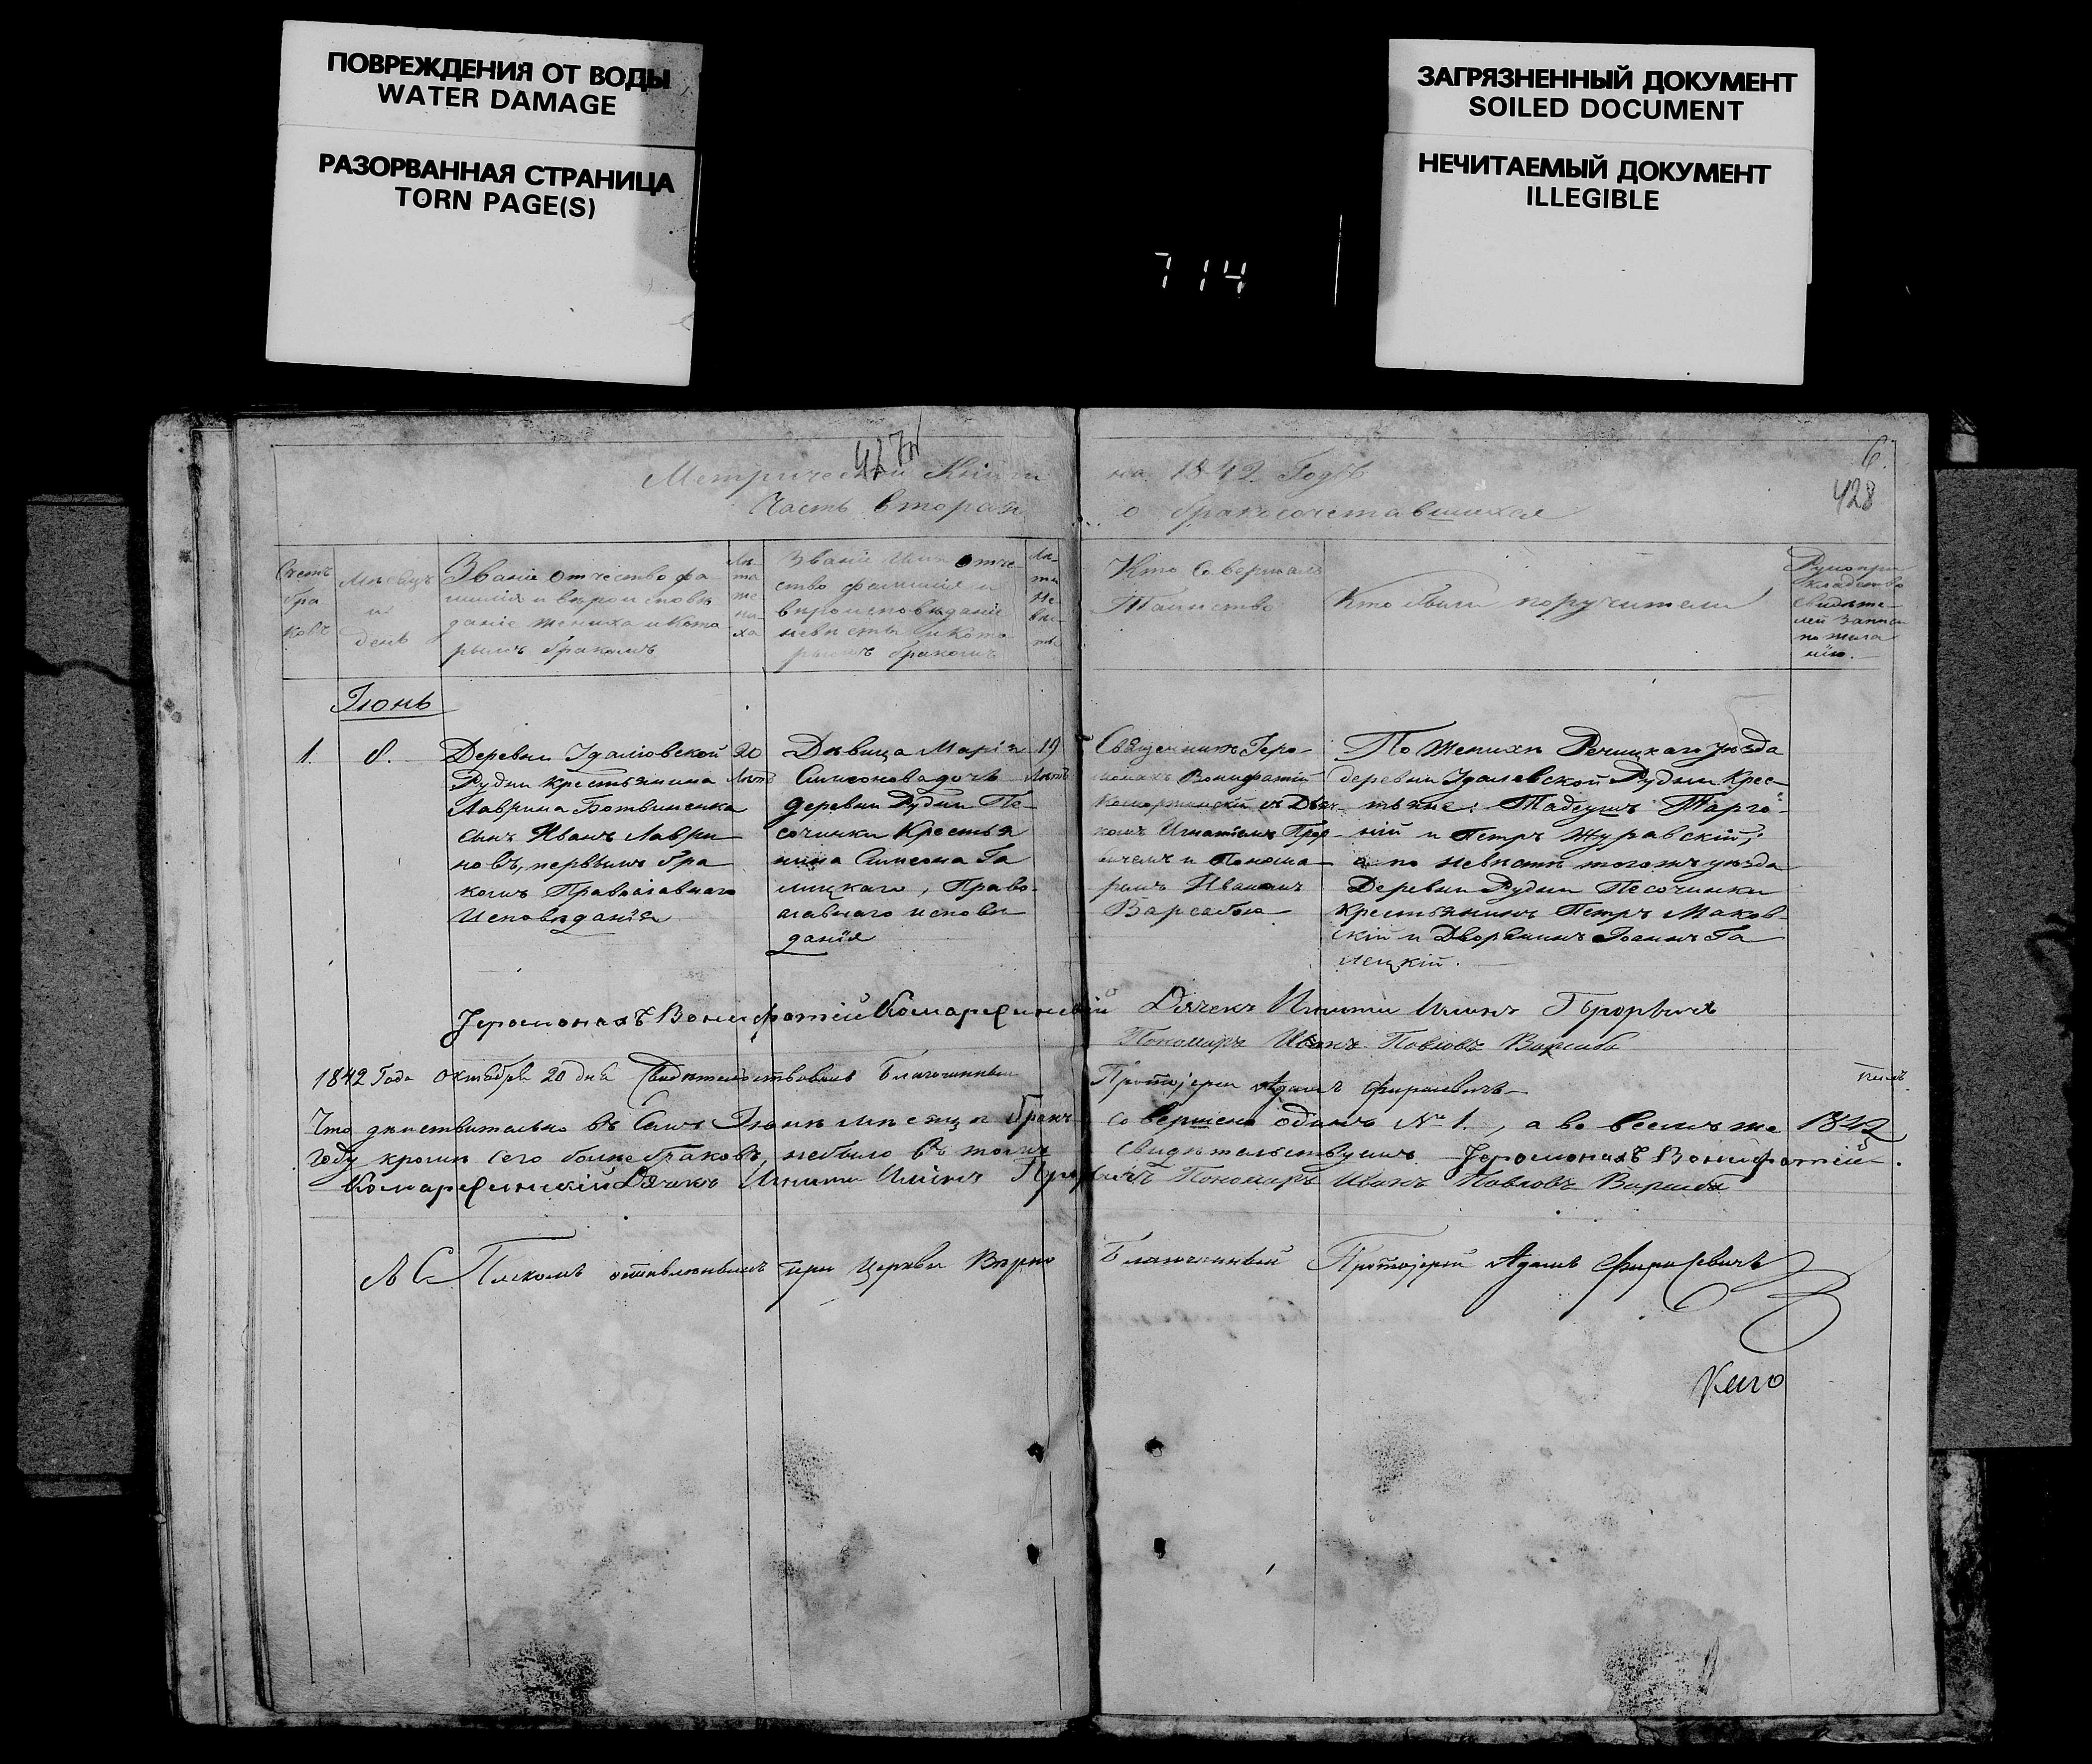 ПОВРЕЖДЕНИЯ ОТ ВОДЫ
WATER DAMAGE
РАЗОРВАННАЯ СТРАНИЦА
TORN PAGE(S)
ЗАГРЯЗНЕННЫЙ ДОКУМЕНТ
SOILED DOCUMENT
НЕЧИТАЕМЫЙ ДОКУМЕНТ
ILLEGIBLE
714
427
6.
428
Метрической Книги на 1842 Годъ
Часть Вторая о бракосочетавшихся
Счетъ
бра
ковъ
Мѣсяцъ
и
день
Званіе отчество фа
милія и вѣроисповѣ
даніе жениха и кото
рымъ бракомъ
Лѣ-
та
же
ни-
ха
Званіе имя отче
ство фамилія и
вѣроисповѣданіе
невѣсты и кото
рымъ бракомъ
Лѣ-
та
Не-
вѣс-
ты
Кто Совершалъ
Таинство
Кто были поручители
Рукопри
кладство
свидѣте-
лей записи
по жела
нію.
Іюнь
1.
8.
Деревни
Рудни крестьянина
Лаврина Ботвиненка
сынъ Иванъ Лаври
новъ, первымъ бра
комъ Православнаго
Исповѣданія
20
Лѣтъ
Дѣвица Марія
Симеонова дочь
деревни Рудни Пе-
сочинки Крестья
нина Симеона Га
лицкаго, Право-
славнаго исповѣ
данія
19
Лѣтъ
Священникъ Іеро-
монахъ Вонифатій
съ Дьяч-
комъ Игнатіемъ
и Понома-
ремъ Иваномъ
Варсабою
По Женихѣ Речицкаго уѣзда
деревни Рудни Крес-
тьяне: Тадеушъ
и Петръ Журавскій;
а по невѣстѣ тогожъ уѣзда
Деревни Рудни Песочинки
крестьянинъ Петръ Маков-
скій и Дворянинъ Іоаннъ Га
лецкій.
Іеромонахъ Вонифатій
Дячекъ
Пономаръ Иванъ Павловъ Варсаба
1842 Года октября 20 дня Свидѣтельствовалъ Благочинный Протоіерей Адамъ
Что дѣйствительно въ Семъ Іюнѣ мѣсяцѣ бракъ совершенъ одинъ № 1., а во всемъ же 1842
году кромѣ сего болѣе браковъ небыло въ томъ свидѣтельствуемъ Іеромонахъ Вонифатій
Дячекъ Пономаръ Иванъ Павловъ Варсаба
при Церкви Вѣрно Благочинный Протоіерей Адамъ